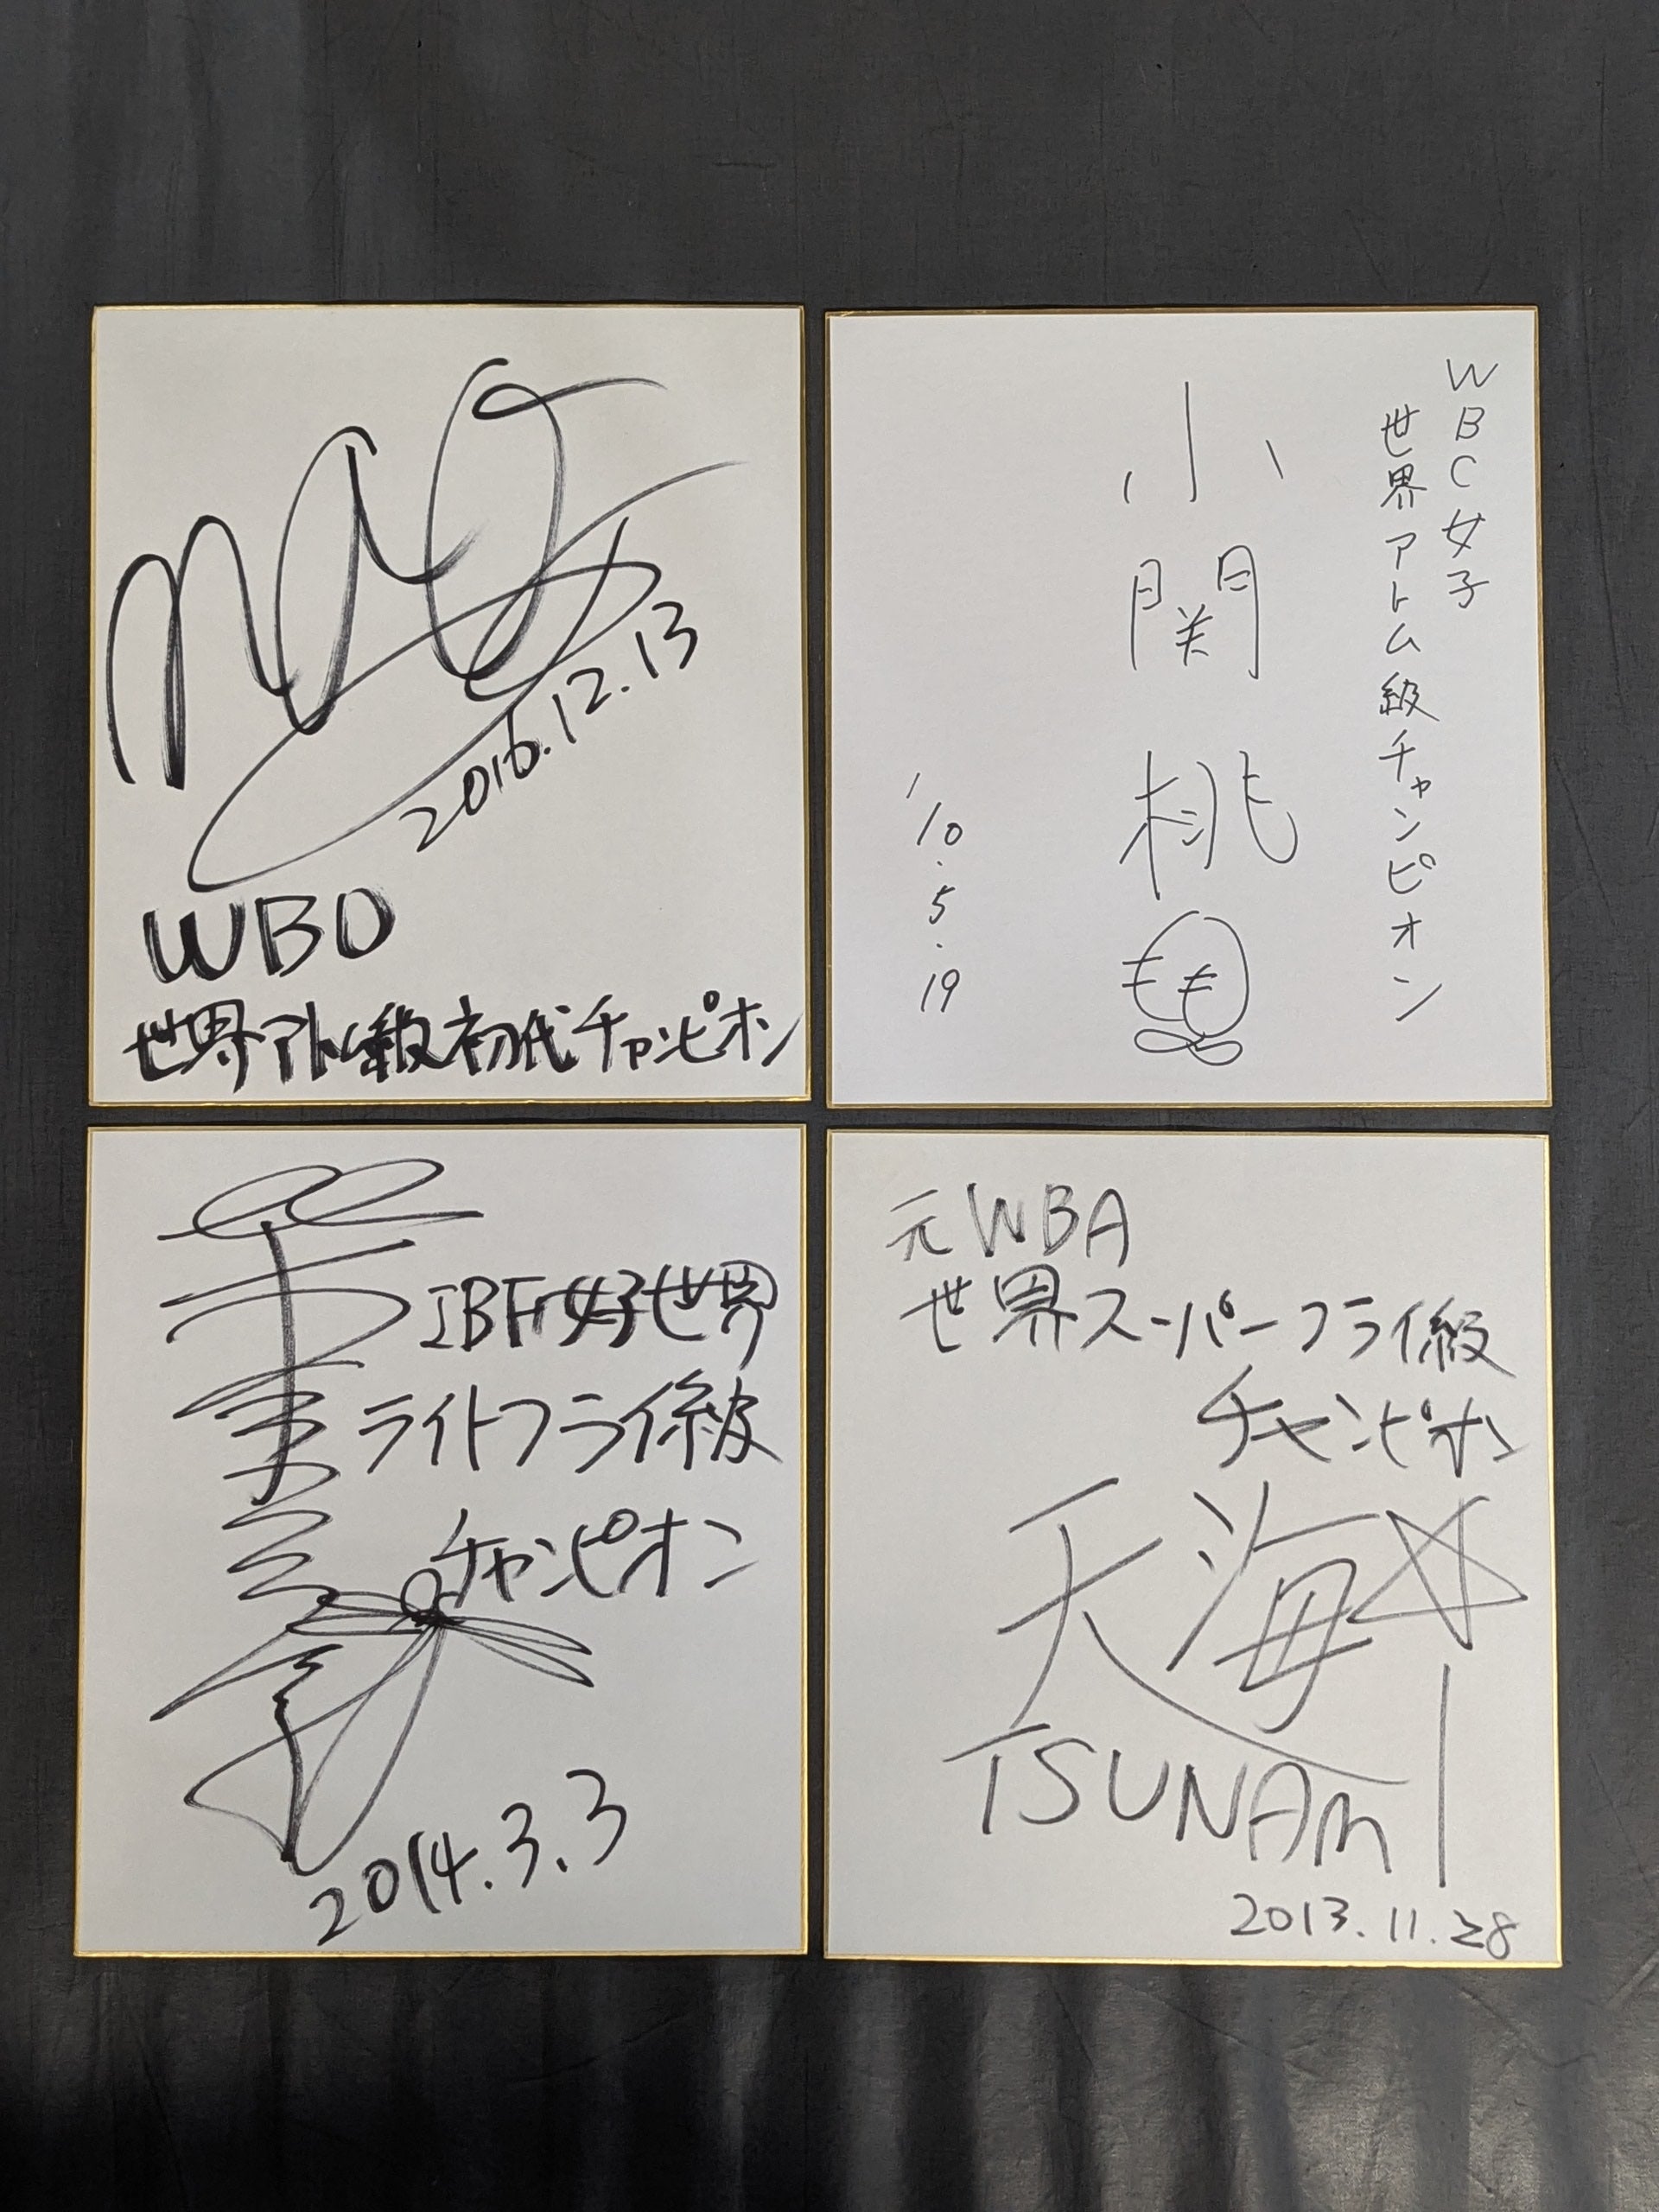 2016.12.13
WBO
世界アトム級初代チャンピオン
WBC女子
世界アトム級チャンピオン
小関桃
'10.5.19
IBF女子世界
ライトフライ級
チャンピオン
2014.3.3
元WBA
世界スーパーフライ級
チャンピオン
天海
TSUNAMI
2013.11.28